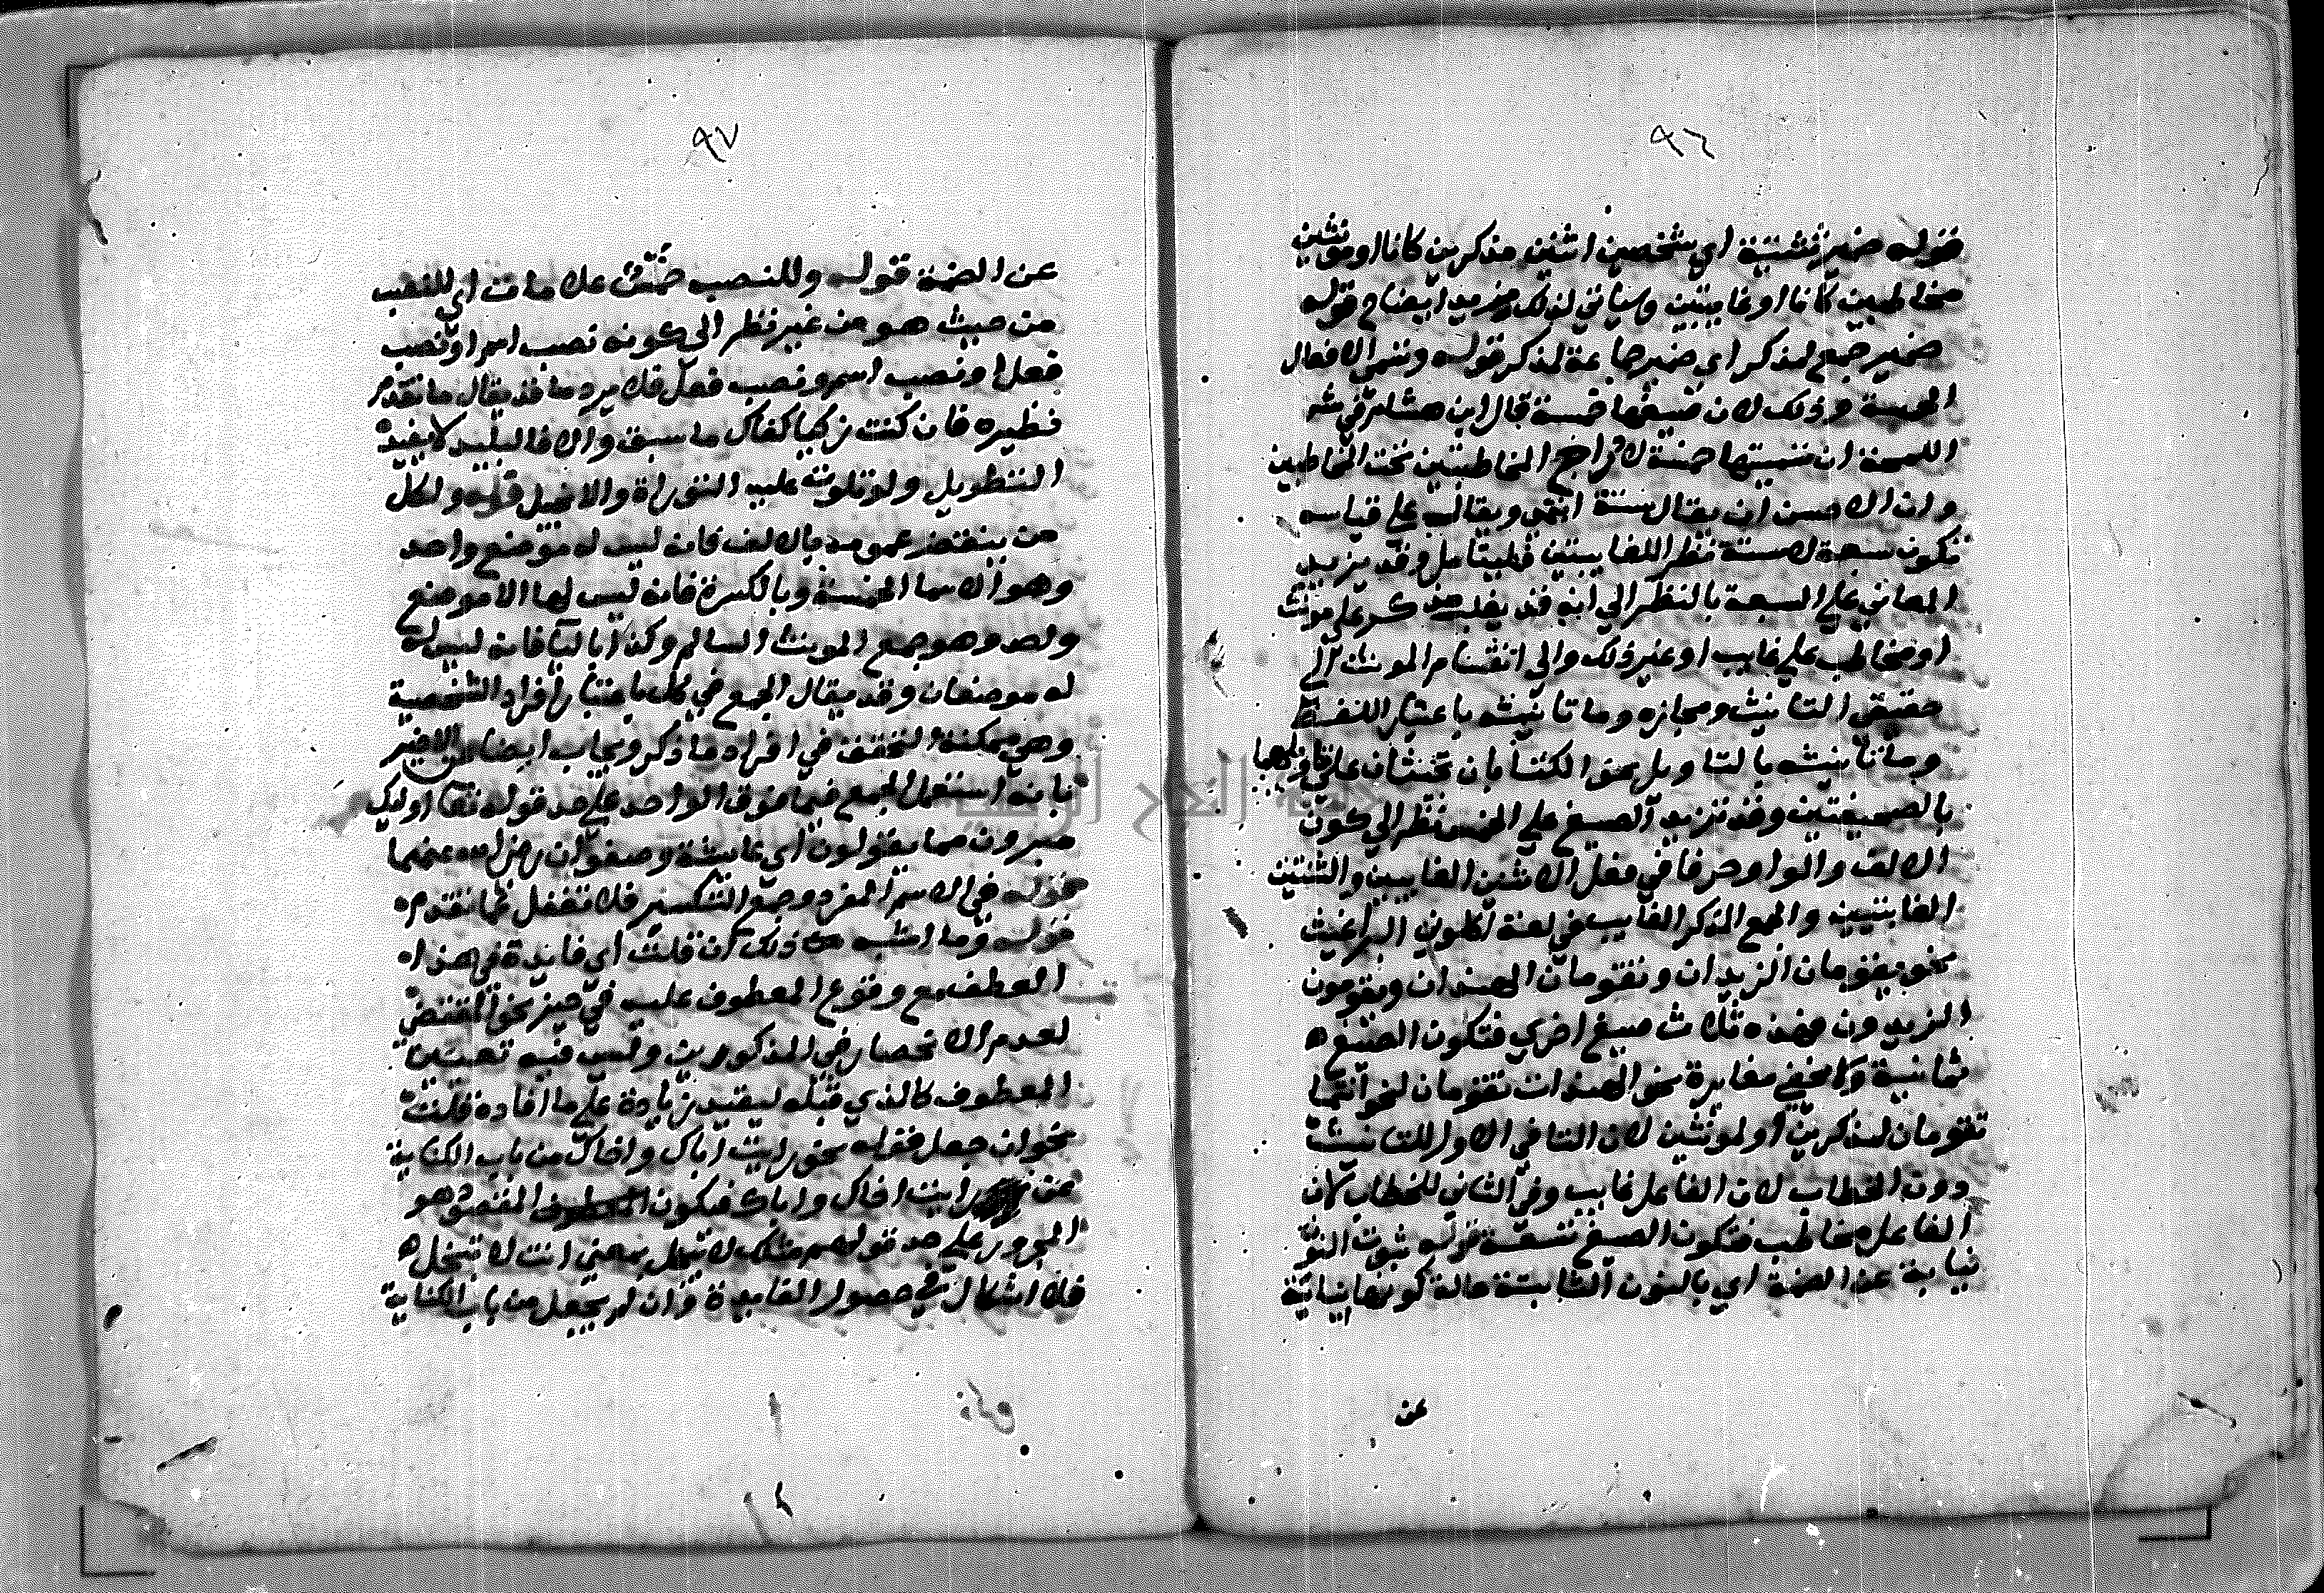 ٩٦
قوله ضمير تثنية اي شخصين اثنين مذكرين كانا او مؤنثين
مخاطبين كانا او غايبتين وسياتي لذلك مزيد ايضاح قوله
ضمير جمع لمذكر اي ضمير جماعة لمذكر قوله وتسمى الافعال
الخمسة وذلك لان صيغها خمسة قال ابن هشام في شرح
اللمحة ان تسميتها خمسة لاندراج المخاطبتين تحت المخاطبين
وان الاحسن ان يقال ستة انتهى ويقال على قياسه
تكون سبعة لا ستة نظرا للغايبتين فليتامل وقد يزيد
المعاني على السبعة بالنظر الى انه قد يغلب مذكر على مؤنث
او مخاطب على غايب او غير ذلك والى انقسام المونث الى
حقيقي التانيث ومجازه وما تانيثه باعتبار اللفظ
وما تانيثه بالتاويل
بالصيغتين وقد تزيد الصيغ على الخمس نظرا الى كون
الالف والواو حرفا في فعل الاثنين الغايبين والثنتين
الغايبتين والجمع المذكر الغايب في لغة اكلوني البراغيث
نحو يقومان الزيدان وتقومان الهندان ويقومون
الزيدون فهذه ثلاث صيغ اخرى فتكون الصيغ
ثمانية ولا يخفى مغايرة نحو الهندات تقومان لنحو انتما
تقومان لمذكرين او لمونثين لان التا في الاول للتانيث
دون الخطاب لان الفاعل غايب وفي الثاني للخطاب لان
الفاعل مخاطب فتكون الصيغ تسعة قوله ثبوت النون
نيابة عن الضمة اي بالنون الثابتة حالة كونها نيابة
عن
٩٧
عن الضمة قوله وللنصب خمس علامات اي للنصب
من حيث هو من غير نظر الى كونه نصب اسم او نصب
فعل او نصب اسم ونصب فعل فلا يرد ما قد يقال ما تقدم
نظيره فان كنت زكيا كفاك ما سبق والا فالبليد لا يفيده
التطويل ولو تلوت عليه التوراة والانجيل قوله ولكل
من بنقض عمومه بالالف فانه ليس له موضع واحد
وهو الاسما الخمسة وبالكسرة فانه ليس لها الا موضع
واحد وهو جمع المونث السالم وكذا باليا فانه ليس له
له موضعان وقد يقال الجمع في كل باعتبار افراد الشخصية
وهي ممكنة التحقق في افراد ما ذكر ويجاب ايضا عن الاخير
بانه استعمل الجمع فيما فوق الواحد على حد قوله تعا اوليك
مبرون مما يقولون اي عايشة وصفوان رضي الله عنهما
قوله في الاسم المفرد وجمع التكسير فلا تغفل عما تقدم
قوله وما اشبه ذلك ان قلت اي فايدة في هذا
العطف مع وقوع المعطوف عليه في حيز نحو المقتضي
لعدم الانحصار في المذكورين وليس فيه تعيين
المعطوف كالذي قبله ليفيد زيادة على ما افاده قلت
نحو ان جعل قوله نحو رايت اباك واخاك من باب الكناية
عن رايت اخاك واباك فيكون المقصود هو
المجرور على حد قولهم مثلك لا يبخل بمعنى انت لا تبخل
فلا اشكال في حصول الفايدة وان لم يجعل من باب الكناية